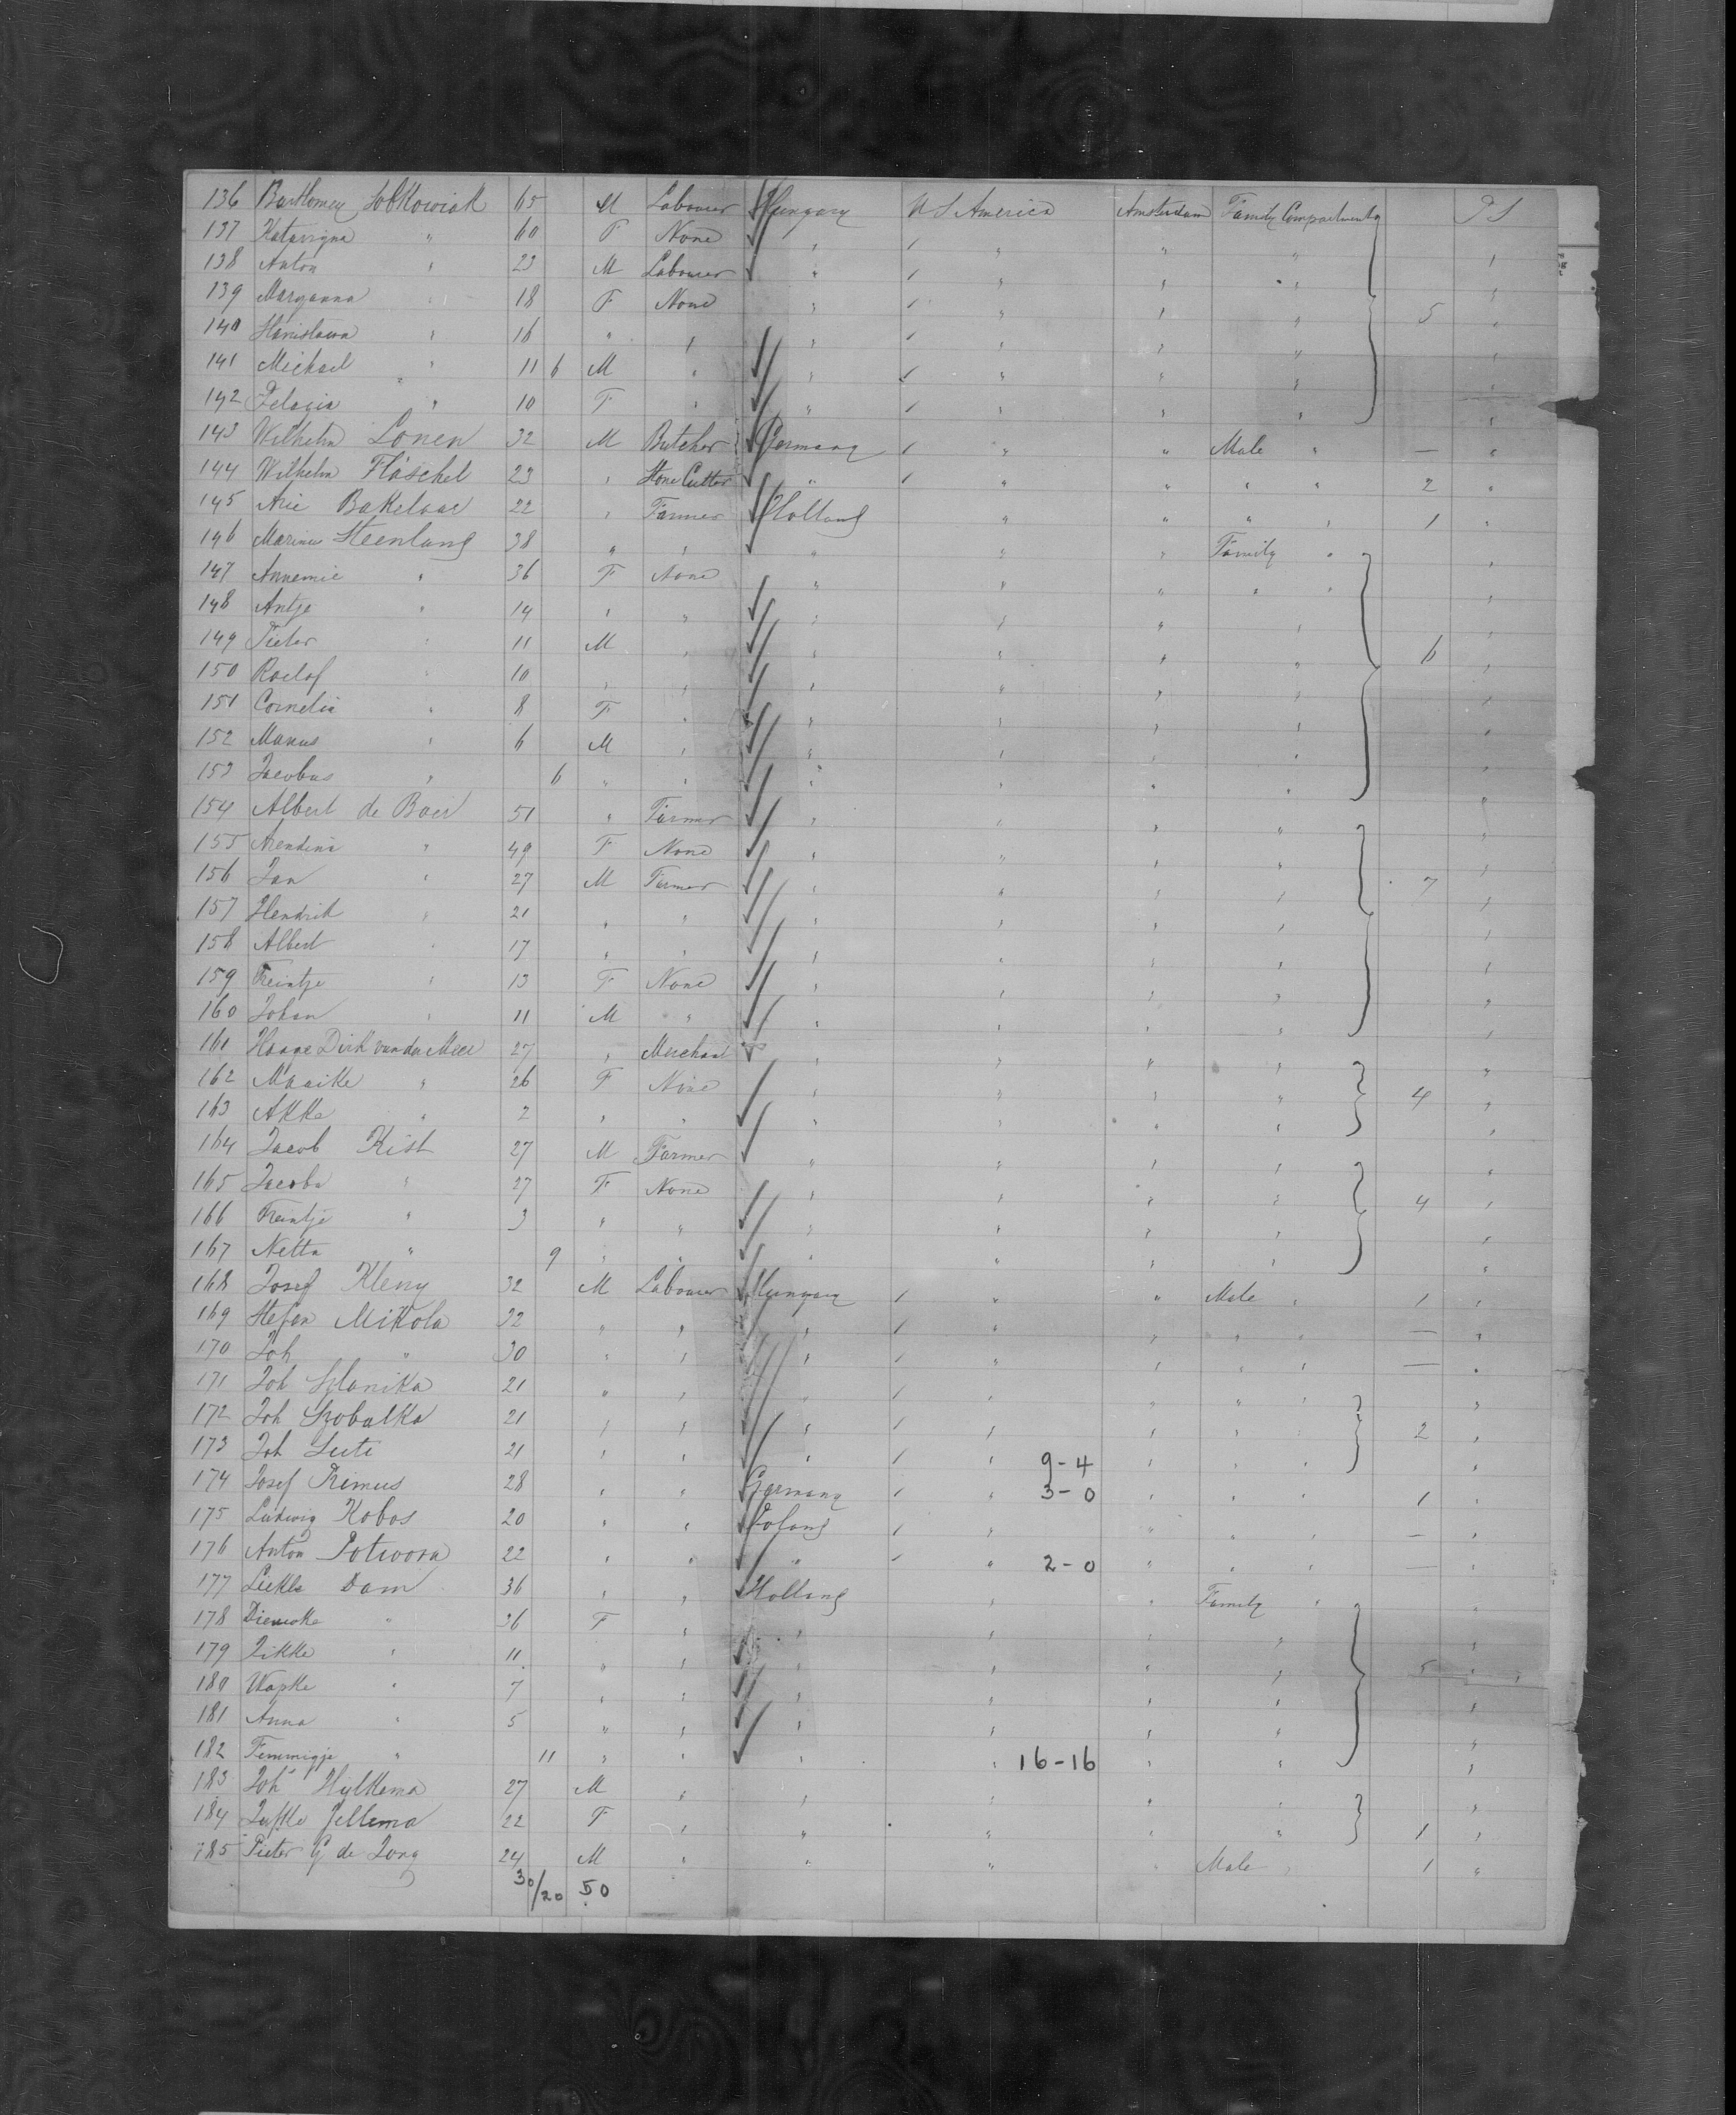 136 Bartlomey Sobkowiak 65 M Labourer Hungary U S America Amsterdam Family Compartments P S
137 Katarzyna " 60 F None " " " " "
138 Anton " 23 M Labourer " " " " "
139 Maryanna " 18 F None " " " " 5 "
140 Stanislawa " 16 " " " " " " "
141 Michael " 11 6 M " " " " " "
142 Pelagia " 10 F " " " " " "
143 Wilhelm Lonen 32 M Butcher Germany " " Male " — "
144 Wilhelm Fläschel 23 " Stone Cutter " " " " " 2 "
145 Arie Bakelaar 22 " Farmer Holland " " " " 1 "
146 Marinus Steenland 38 " " " " " Family " "
147 Annemie " 36 F None " " " " " "
148 Antje " 14 " " " " " " "
149 Pieter " 11 M " " " " " 6 "
150 Roelof " 10 " " " " " " "
151 Cornelia " 8 F " " " " " "
152 Manus " 6 M " " " " " "
153 Jacobus " 6 " " " " " " "
154 Albert de Boer 51 " Farmer " " " " "
155 Arendina " 49 F None " " " " "
156 Jan " 27 M Farmer " " " " 7 "
157 Hendrik " 21 " " " " " " "
158 Albert " 17 " " " " " " "
159 Freintje " 13 F None " " " " "
160 Johan " 11 M " " " " " "
161 Haaye Dirk van der Meer 27 " Merchant " " " " "
162 Maaike " 26 F None " " " " 4 "
163 Akke " 2 " " " " " " "
164 Jacob Kist 27 M Farmer " " " " "
165 Jacoba " 27 F None " " " " 4 "
166 Freintje " 3 " " " " " " "
167 Netta " 9 " " " " " " "
168 Josef Kleny 32 M Labourer Hungary " " Male " 1 "
169 Stefan Mikola 32 " " " " " " " — "
170 Joh " 30 " " " " " " " — "
171 Joh 21 " " " " " " " "
172 Joh Szobalka 21 " " " " " " " 2 "
173 Joh 21 " " " " 9-4 " " " "
174 Josef Primus 28 " " Germany " 3-0 " " " 1 "
175 Ludwig Kobos 20 " " Poland " " " " — "
176 Anton Potwora 22 " " " " 2-0 " " " — "
177 Dam 36 " " Holland " " Family " "
178 " 36 F " " " " " "
179 " 11 " " " " " " 5 " "
180 Wapke " 7 " " " " " " "
181 Anna " 5 " " " " " " "
182 Femmigje " 11 " " " " 16-16 " " "
183 Joh Hylkema 27 M " " " " " "
184 Jellema 22 F " " " " " 1 "
185 Pieter G de Jong 24 M " " " Male " 1 "
30/20 50